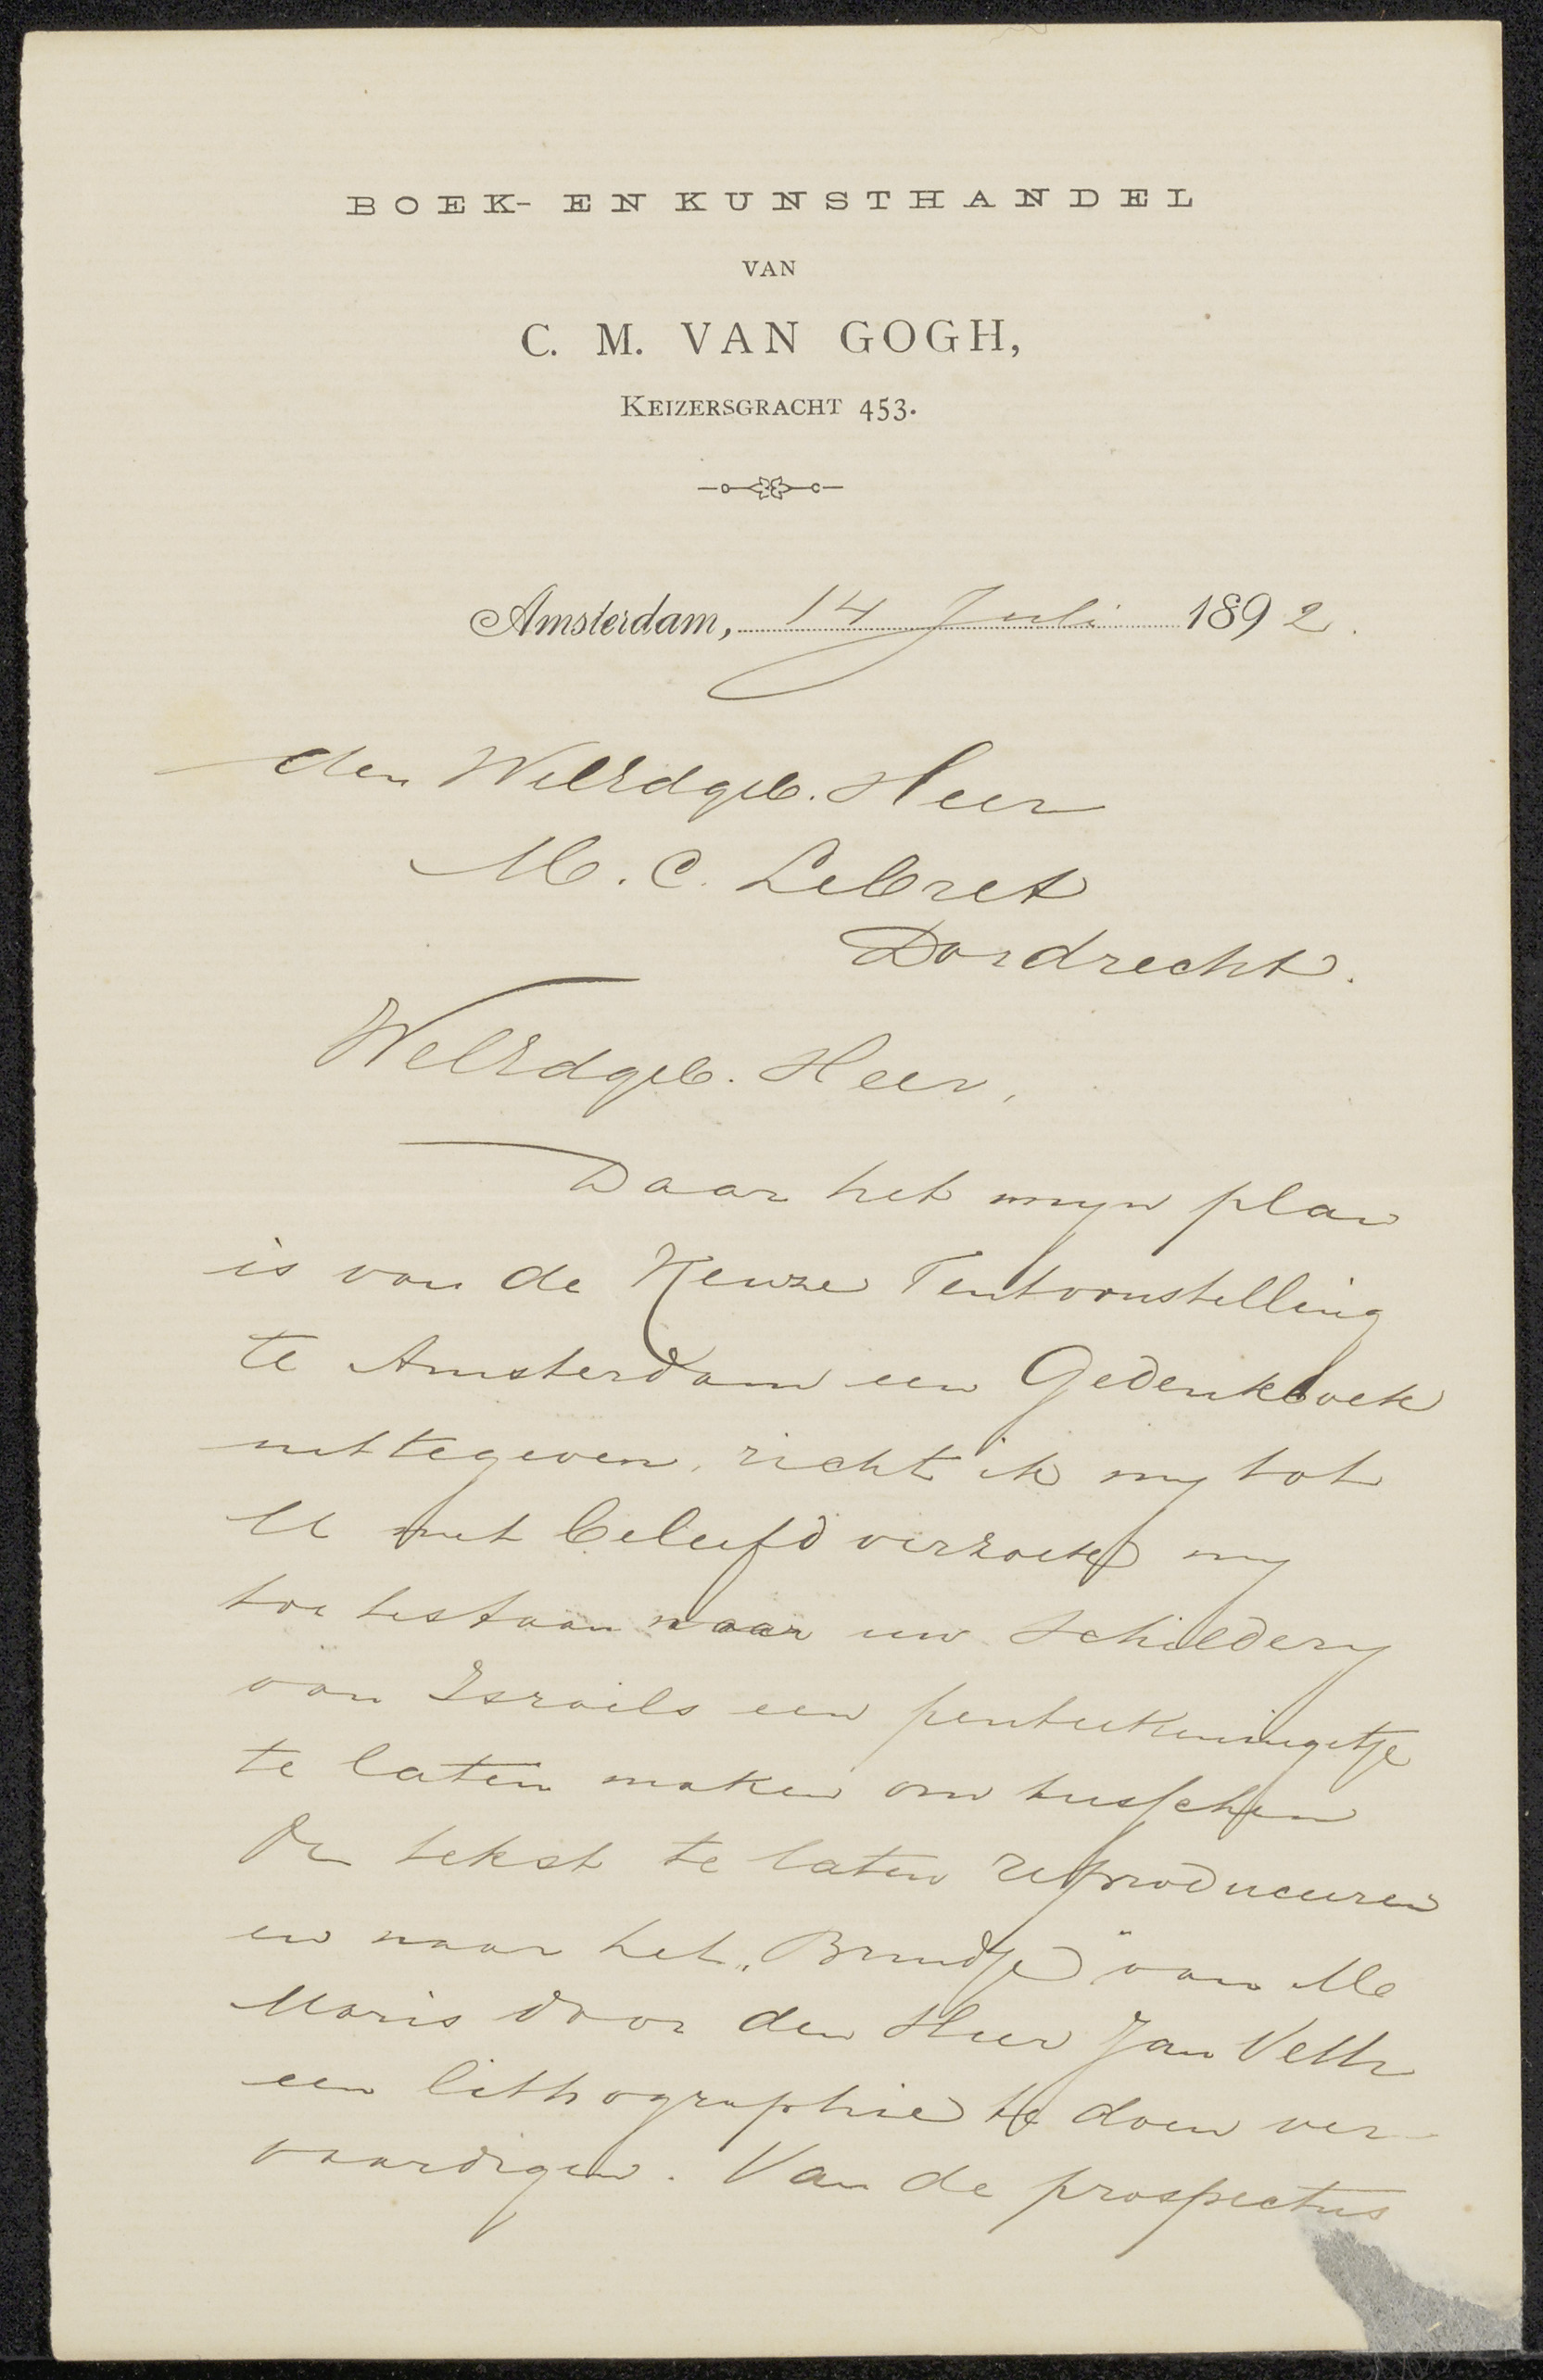 BOEK- EN KUNSTHANDEL
VAN
C. M. VAN GOGH,
KEIZERSGRACHT 453.
Amsterdam, 14 Juli 1892.
den WelEdgeb. Heer
M. C. Lebret
Dordrecht.
WelEdgeb. Heer,
Daar het myn plan
is van de Keuze Tentoonstelling
te Amsterdam een Gedenkboek
uittegeven, richt ik my tot
U met beleefd verzoek my
toe testaan naar uw schildery
van Israels een penteekeningetje
te laten maken om tusschen
den tekst te laten reproduceeren
en naar het „Bruidje" van M
Maris door den Heer Jan Veth
een lithographie te doen ver-
vaardigen. Van de prospectus